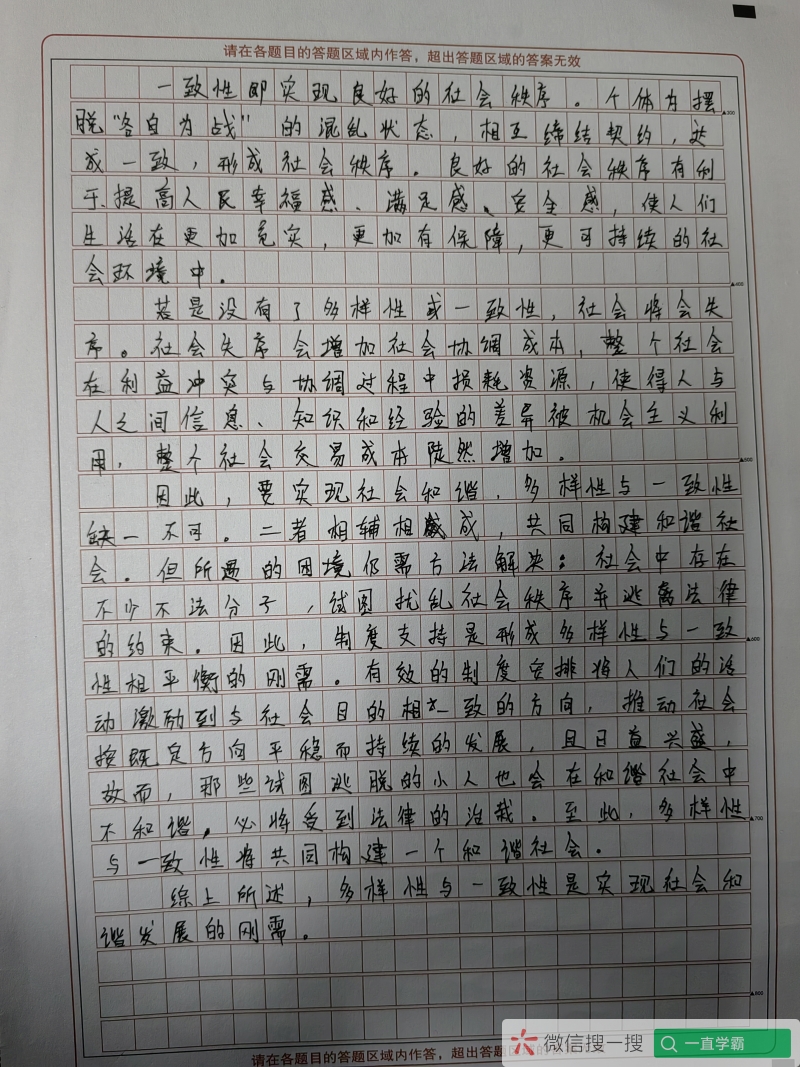 请在各题目的答题区域内作答，超出答题区域的答案无效
一致性即实现良好的社会秩序。个体为摆
▲300
脱“各自为战”的混乱状态，相互缔结契约，达
成一致，形成社会秩序。良好的社会秩序有利
于提高人民幸福感、满足感、安全感，使人们
生活在更加充实，更加有保障，更可持续的社
会环境中。
▲400
若是没有了多样性或一致性，社会将会失
序。社会失序会增加社会协调成本，整个社会
在利益冲突与协调过程中损耗资源，使得人与
人之间信息、知识和经验的差异被机会主义利
用，整个社会交易成本陡然增加。
▲500
因此，要实现社会和谐，多样性与一致性
缺一不可。二者相辅相成，共同构建和谐社
会。但所遇的困境仍需方法解决：社会中存在
不少不法分子，试图扰乱社会秩序并逃离法律
的约束。因此，制度支持是形成多样性与一致
▲600
性相平衡的刚需。有效的制度安排将人们的活
动激励到与社会目的相一致的方向，推动社会
按既定方向平稳而持续的发展，且日益兴盛，
故而，那些试图逃脱的小人也会在和谐社会中
不和谐，必将受到法律的治裁。至此，多样性
▲700
与一致性将共同构建一个和谐社会。
综上所述，多样性与一致性是实现社会和
谐发展的刚需。
▲800
请在各题目的答题区域内作答，超出答题区域的
微信搜一搜
一直学霸